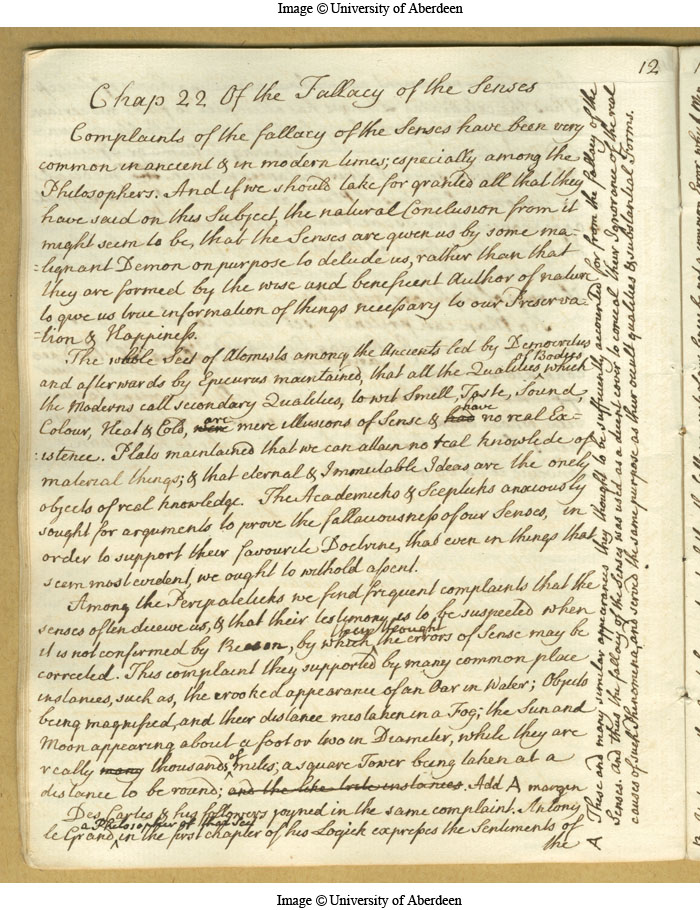 Image © University of Aberdeen
12
Chap 22 Of the Fallacy of the Senses
Complaints of the fallacy of the Senses have been very
common in ancient & in modern times; especially among the
Philosophers. And if we should take for granted all that they
have said on this Subject, the natural Conclusion from it
might seem to be, that the Senses are given us by some ma-
-lignant Demon on purpose to delude us, rather than that
they are formed by the wise and beneficent Author of nature
to give us true information of things necessary to our Preserva-
-tion & Happiness.
The whole Sect of Atomists among the Ancients led by Democritus
and afterwards by Epicurus maintained, that all the Qualities of Bodys which
the Moderns call secondary Qualities, to wit Smell, Taste, Sound,
Colour, Heat & Cold, were are mere illusions of Sense & had have no real Ex-
-istence. Plato maintained that we can attain no real knowledge of
material things; & that eternal & Immutable Ideas are the onely
objects of real knowledge. The Academicks & Scepticks anxiously
sought for arguments to prove the fallaciousness of our Senses, in
order to support their favourite Doctrine, that even in things that
seem most evident, we ought to withold assent.
Among the Peripateticks we find frequent complaints that the
senses often deceive us, & that their testimony is to be suspected when
it is not confirmed by Reason, by which they thought the errors of Sense may be
corrected. This complaint they supported by many common place
instances, such as, the crooked appearance of an Oar in Water; Objects
being magnified, and their distance mistaken in a Fog; the Sun and
Moon appearing about a foot or two in Diameter, while they are
really many thousands of miles; a square Tower being taken at a
distance to be round; and the like trite instances. Add A margin
Des Cartes & his followers joyned in the same complaint. Antony
le Grand a Philosopher of that Sect in the first chapter of his Logick expresses the Sentiments of
the
A These and many similar appearances they thought to be sufficiently accounted for from the fallacy of the
Senses. and thus the fallacy of the Senses was used as a decent cover to conceal their Ignorance of the real
causes of such Phenomena, and served the same purpose as their occult qualities & substantial Forms.
Image © University of Aberdeen